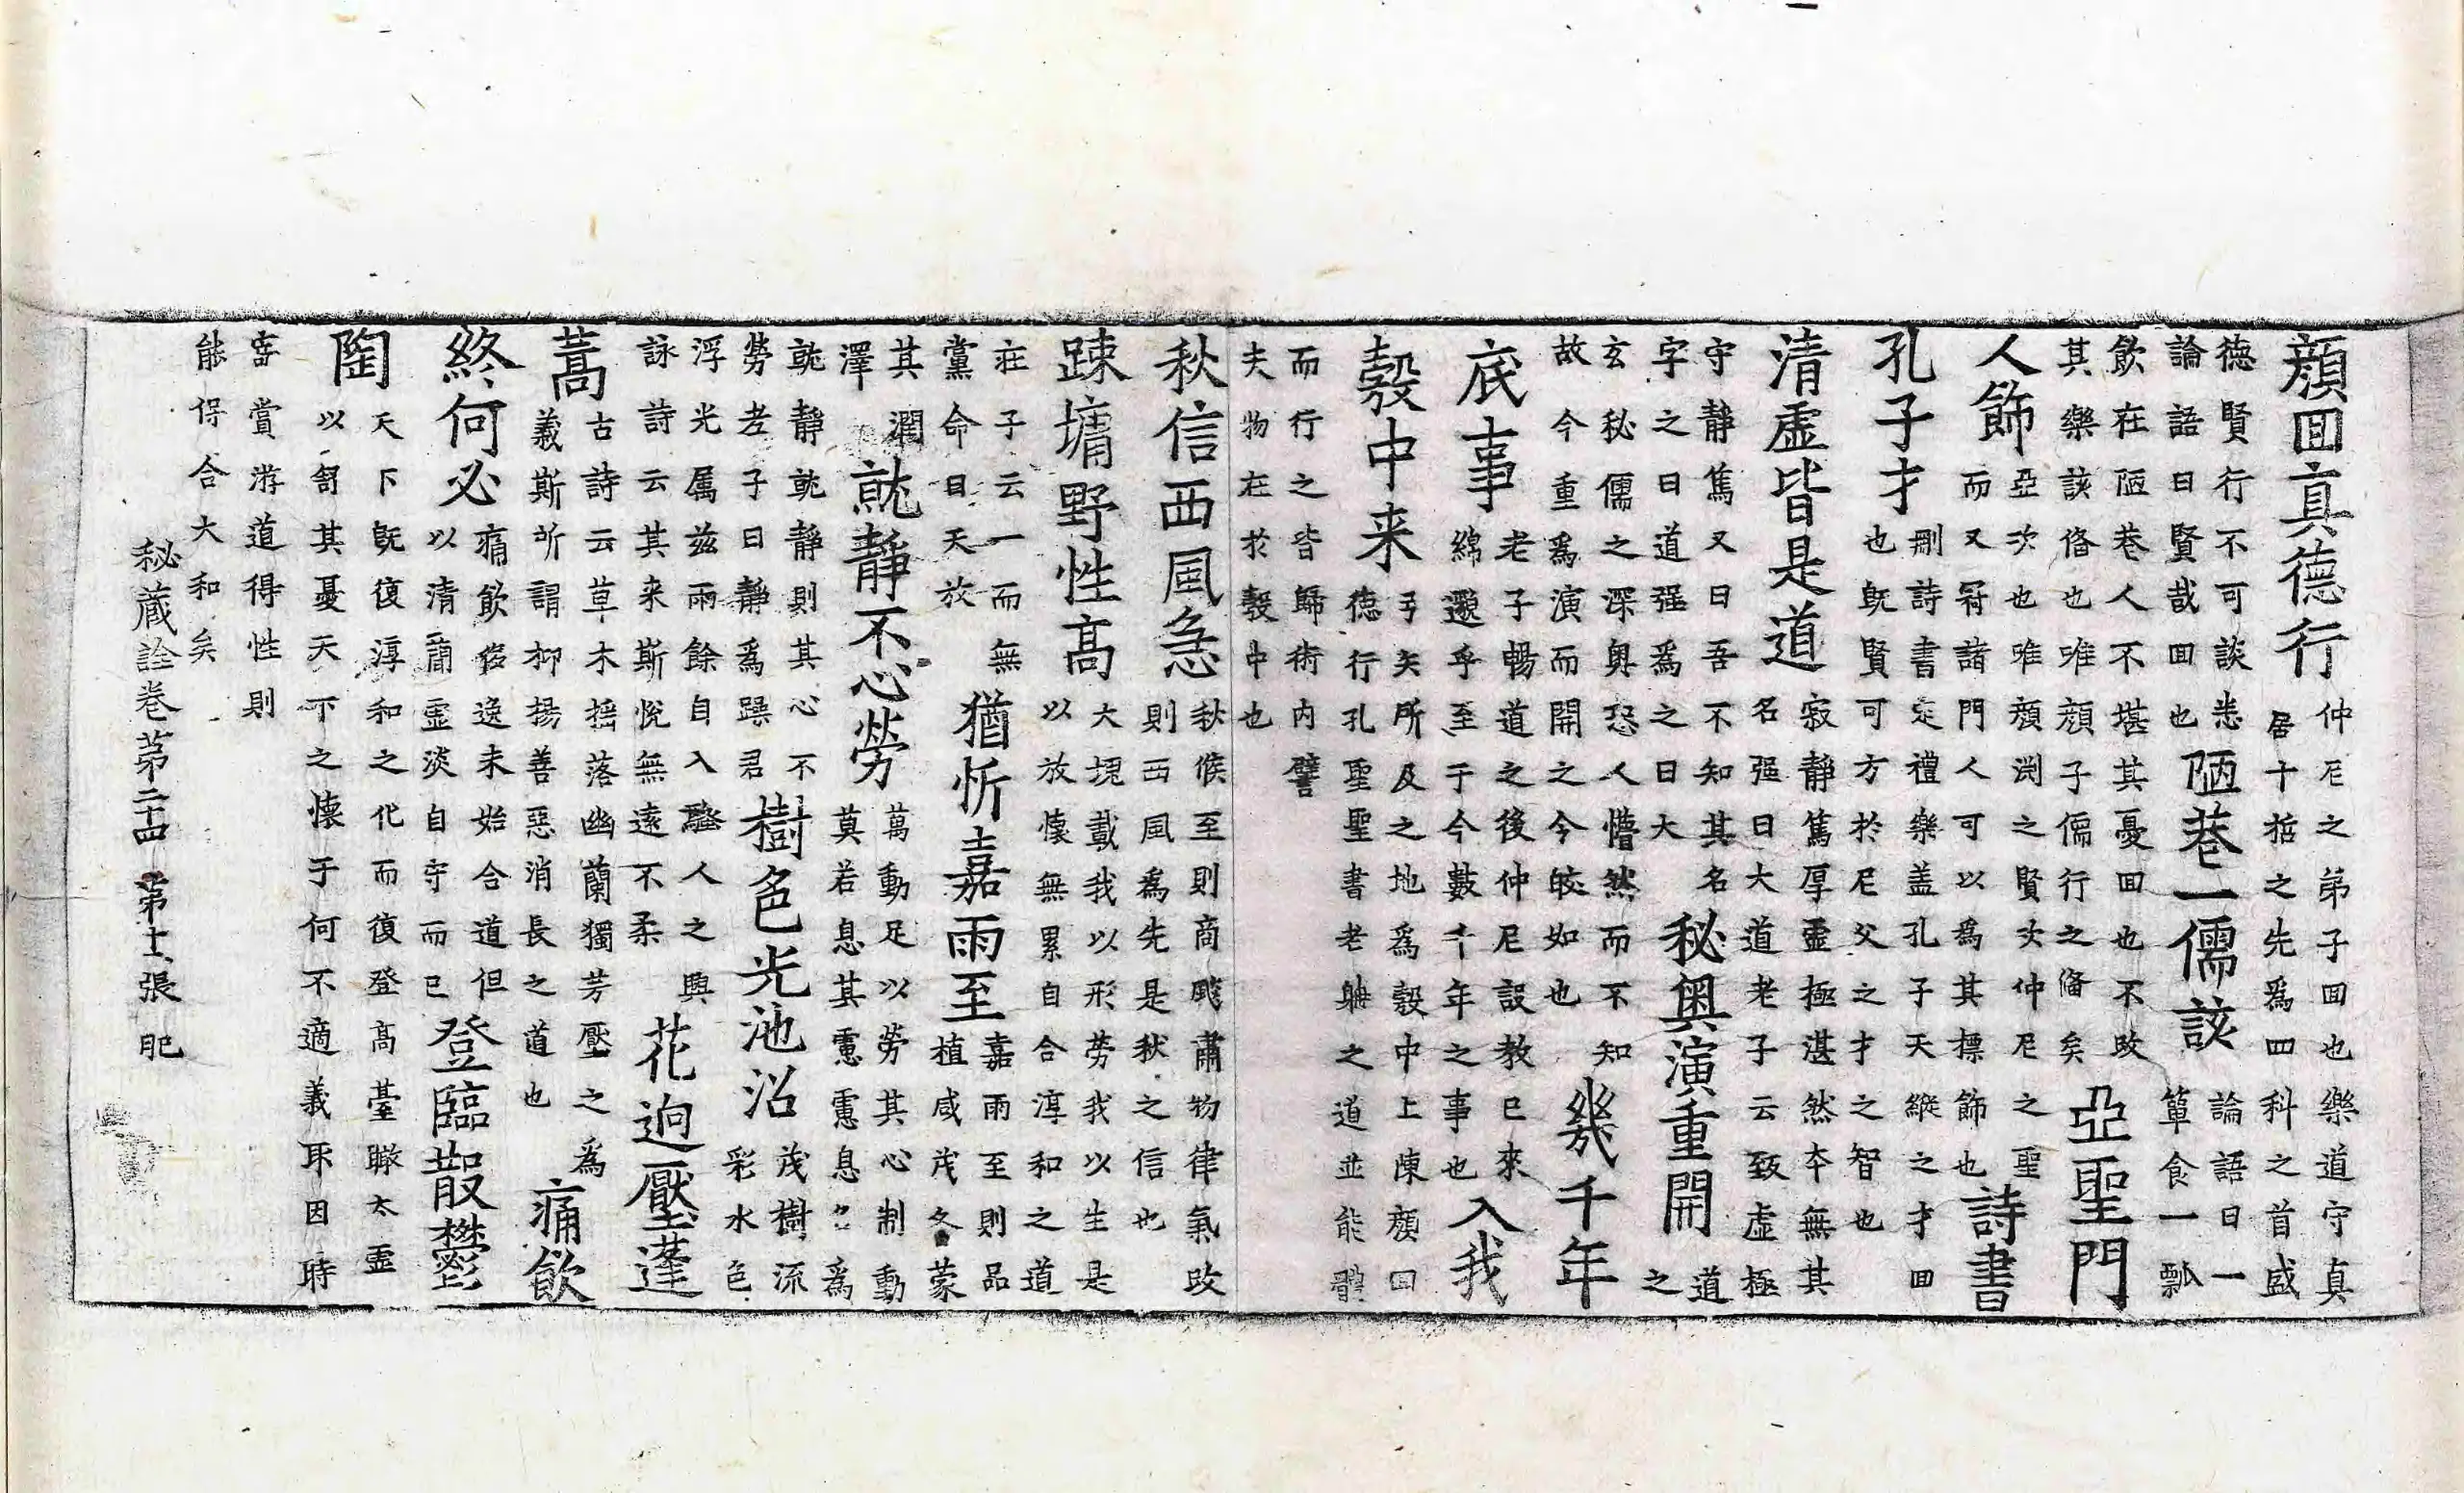 顔回真德行仲尼之弟子回也樂道守真居十哲之先為四科之首盛
德賢行不可談悉論語曰賢哉回也陋巷一儒該論語曰一簞食一瓢
飲在陋巷人不堪其憂回也不改其樂該俻也唯顔子儒行之俻矣亞聖門
人飾亞次也唯顔渊之賢次仲尼之聖而又冠諸門人可以為其標飾也詩書
孔子才刪詩書定禮樂盖孔子天縱之才回也既賢可方於尼父之才之智也
清虚皆是道寂靜篤厚靈極湛然本無其名强曰大道老子云致虚極
守靜篤又曰吾不知其名字之曰道强為之曰大秘奥演重開道之
玄秘儒之深奥恐人懵然而不知故今重為演而開之今皎如也幾千年
底事老子暢道之後仲尼設教已來綿邈乎至于今數千年之事也入我
彀中来弓矢所及之地為彀中上陳顔回德行孔聖聖書老躰之道並能體
而行之皆歸術内譬夫物在於彀中也
秋信西風急秋候至則商飈肅物律氣改則西風為先是秋之信也
踈墉野性高大塊載我以形勞我以生是以放懷無累自合淳和之道
莊子云一而無黨命曰天放猶忻嘉雨至嘉雨至則品植咸茂冬蒙
其潤澤就靜不心勞萬動足以勞其心制動莫若息其慮慮息名為
就靜就靜則其心不勞老子曰靜為躁君樹色光池沼茂樹流彩水色
浮光属兹雨餘自入騷人之興詠詩云其来斯悦無遠不柔花逈壓蓬
蒿古詩云草木揺落幽蘭獨芳壓之為義斯所謂抑揚善惡消長之道也痛飲
終何必痛飲俊逸未始合道但以清簡靈淡自守而已登臨散欝
陶天下既復淳和之化而復登高臺眺太靈以舒其憂天下之懷于何不適義耳因時
寄賞游道得性則能保合大和矣
秘蔵詮卷苐二十四 第十二張 肥